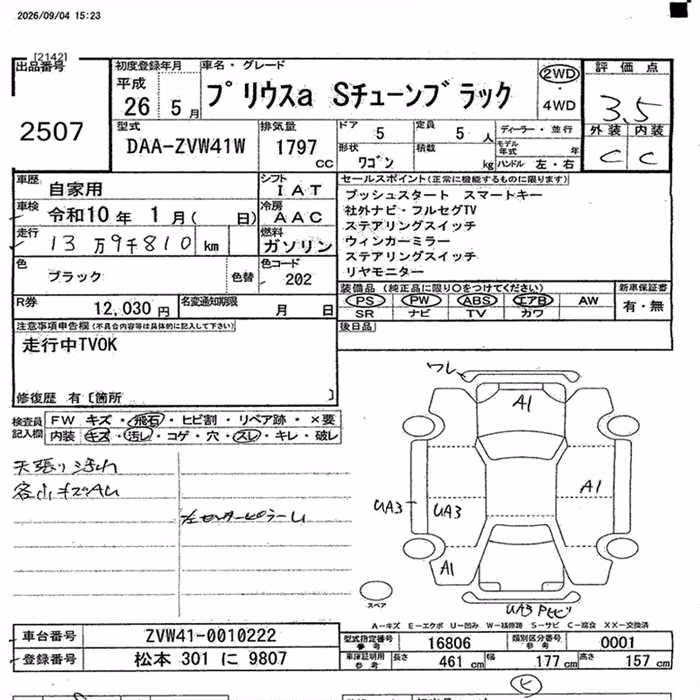 2026/09/04 15:23
[2142]
出品番号
2507
初度登録年月
平成
26 5 月
車名・グレード
プリウスa Sチューンブラック
2WD
4WD
評価点
3.5
外装 内装
C C
型式
DAA-ZVW41W
排気量
1797 CC
ドア 5
定員 5 人
形状 ワゴン
積載 kg
ディーラー・並行
モデル年式 年
ハンドル 左・右
車歴 自家用
シフト IAT
車検 令和10年 1月( 日)
冷房 AAC
走行 13万9千810 km
燃料 ガソリン
色 ブラック 色替
色コード 202
R券 12,030円
名変通知期限 月 日
セールスポイント(正常に機能するものに限ります)
プッシュスタート スマートキー
社外ナビ・フルセグTV
ステアリングスイッチ
ウィンカーミラー
ステアリングスイッチ
リヤモニター
装備品 (純正品に限り○をつけてください)
PS PW ABS エアB AW
SR ナビ TV カワ
新車保証書
有・無
後日品
注意事項申告欄(不具合内容等は具体的に記入して下さい)
走行中TVOK
修復歴 有 [箇所 ]
検査員記入欄
FW キズ・飛石・ヒビ割・リペア跡・×要
内装 キズ・汚レ・コゲ・穴・スレ・キレ・破レ
天張り汚れ
ワレ
A1
A1
UA3
UA3
A1
UA3
スペア
A-キズ E-エクボ U-凹み W-補修跡 S-サビ C-腐食 XX-交換済
車台番号 ZVW41-0010222
登録番号 松本 301 に 9807
型式指定番号参考 16806
類別区分番号参考 0001
車庫証明用参考 長さ 461 cm 幅 177 cm 高さ 157 cm